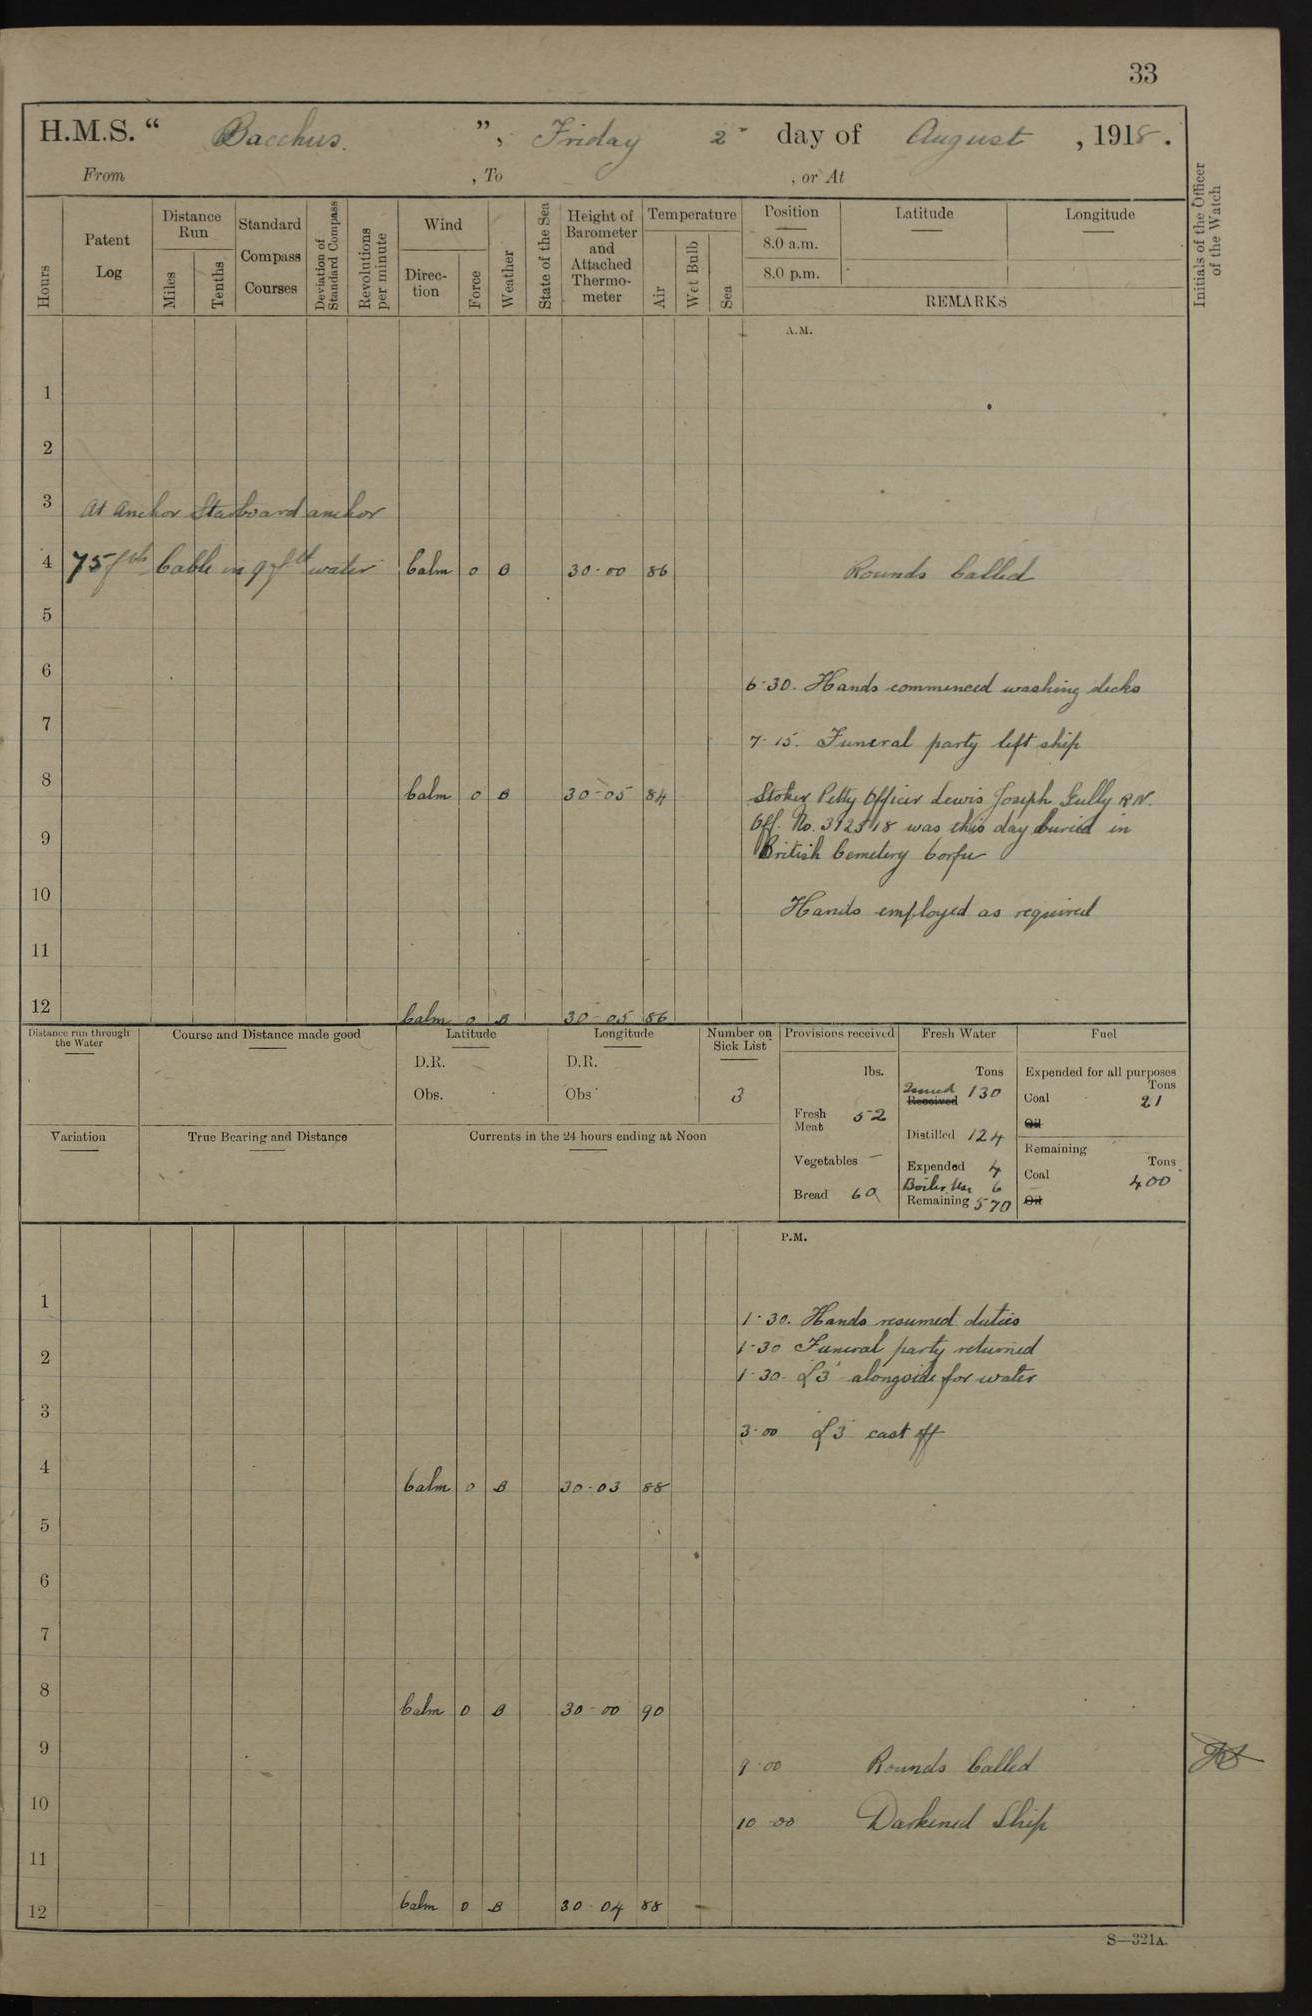 33
H.M.S. “ Bacchus. ”, Friday 2nd day of August , 1918.
From , To , or At
Hours
Patent Log
Distance Run
Miles
Tenths
Standard Compass Courses
Deviation of Standard Compass
Revolutions per minute
Wind
Direction
Force
Weather
State of the Sea
Height of Barometer and Attached Thermometer
Temperature
Air
Wet Bulb
Sea
Position
8.0 a.m.
8.0 p.m.
Latitude
Longitude
REMARKS
Initials of the Officer of the Watch
A.M.
1
2
3 At Anchor Starboard anchor
4 75 fth Cable in 9 fth water Calm 0 B 30-00 86 Rounds Called
5
6
6-30. Hands commenced washing decks
7
7-15. Funeral party left ship
8 Calm 0 B 30-05 84 Stoker Petty Officer Lewis Joseph Gully R.N.
Off. No. 312518 was this day buried in
9 British Cemetery Corfu
10
Hands employed as required
11
12 Calm 0 B 30-05 86
Distance run through the Water
Course and Distance made good
Latitude
D.R.
Obs.
Longitude
D.R.
Obs
Number on Sick List
3
Provisions received
lbs.
Fresh Meat 52
Vegetables –
Bread 60
Fresh Water
Tons
Issued
Received 130
Distilled 124
Expended 4
Boiler Use 6
Remaining 570
Fuel
Expended for all purposes
Tons
Coal 21
Oil
Remaining
Tons
Coal 400
Oil
Variation
True Bearing and Distance
Currents in the 24 hours ending at Noon
P.M.
1
1-30. Hands resumed duties
1-30 Funeral party returned
2
1-30. L3 alongside for water
3
3-00 L3 cast off
4 Calm 0 B 30-03 88
5
6
7
8 Calm 0 B 30-00 90
9
9-00 Rounds Called
10
10-00 Darkened Ship
11
12 Calm 0 B 30-04 88
S—321A.